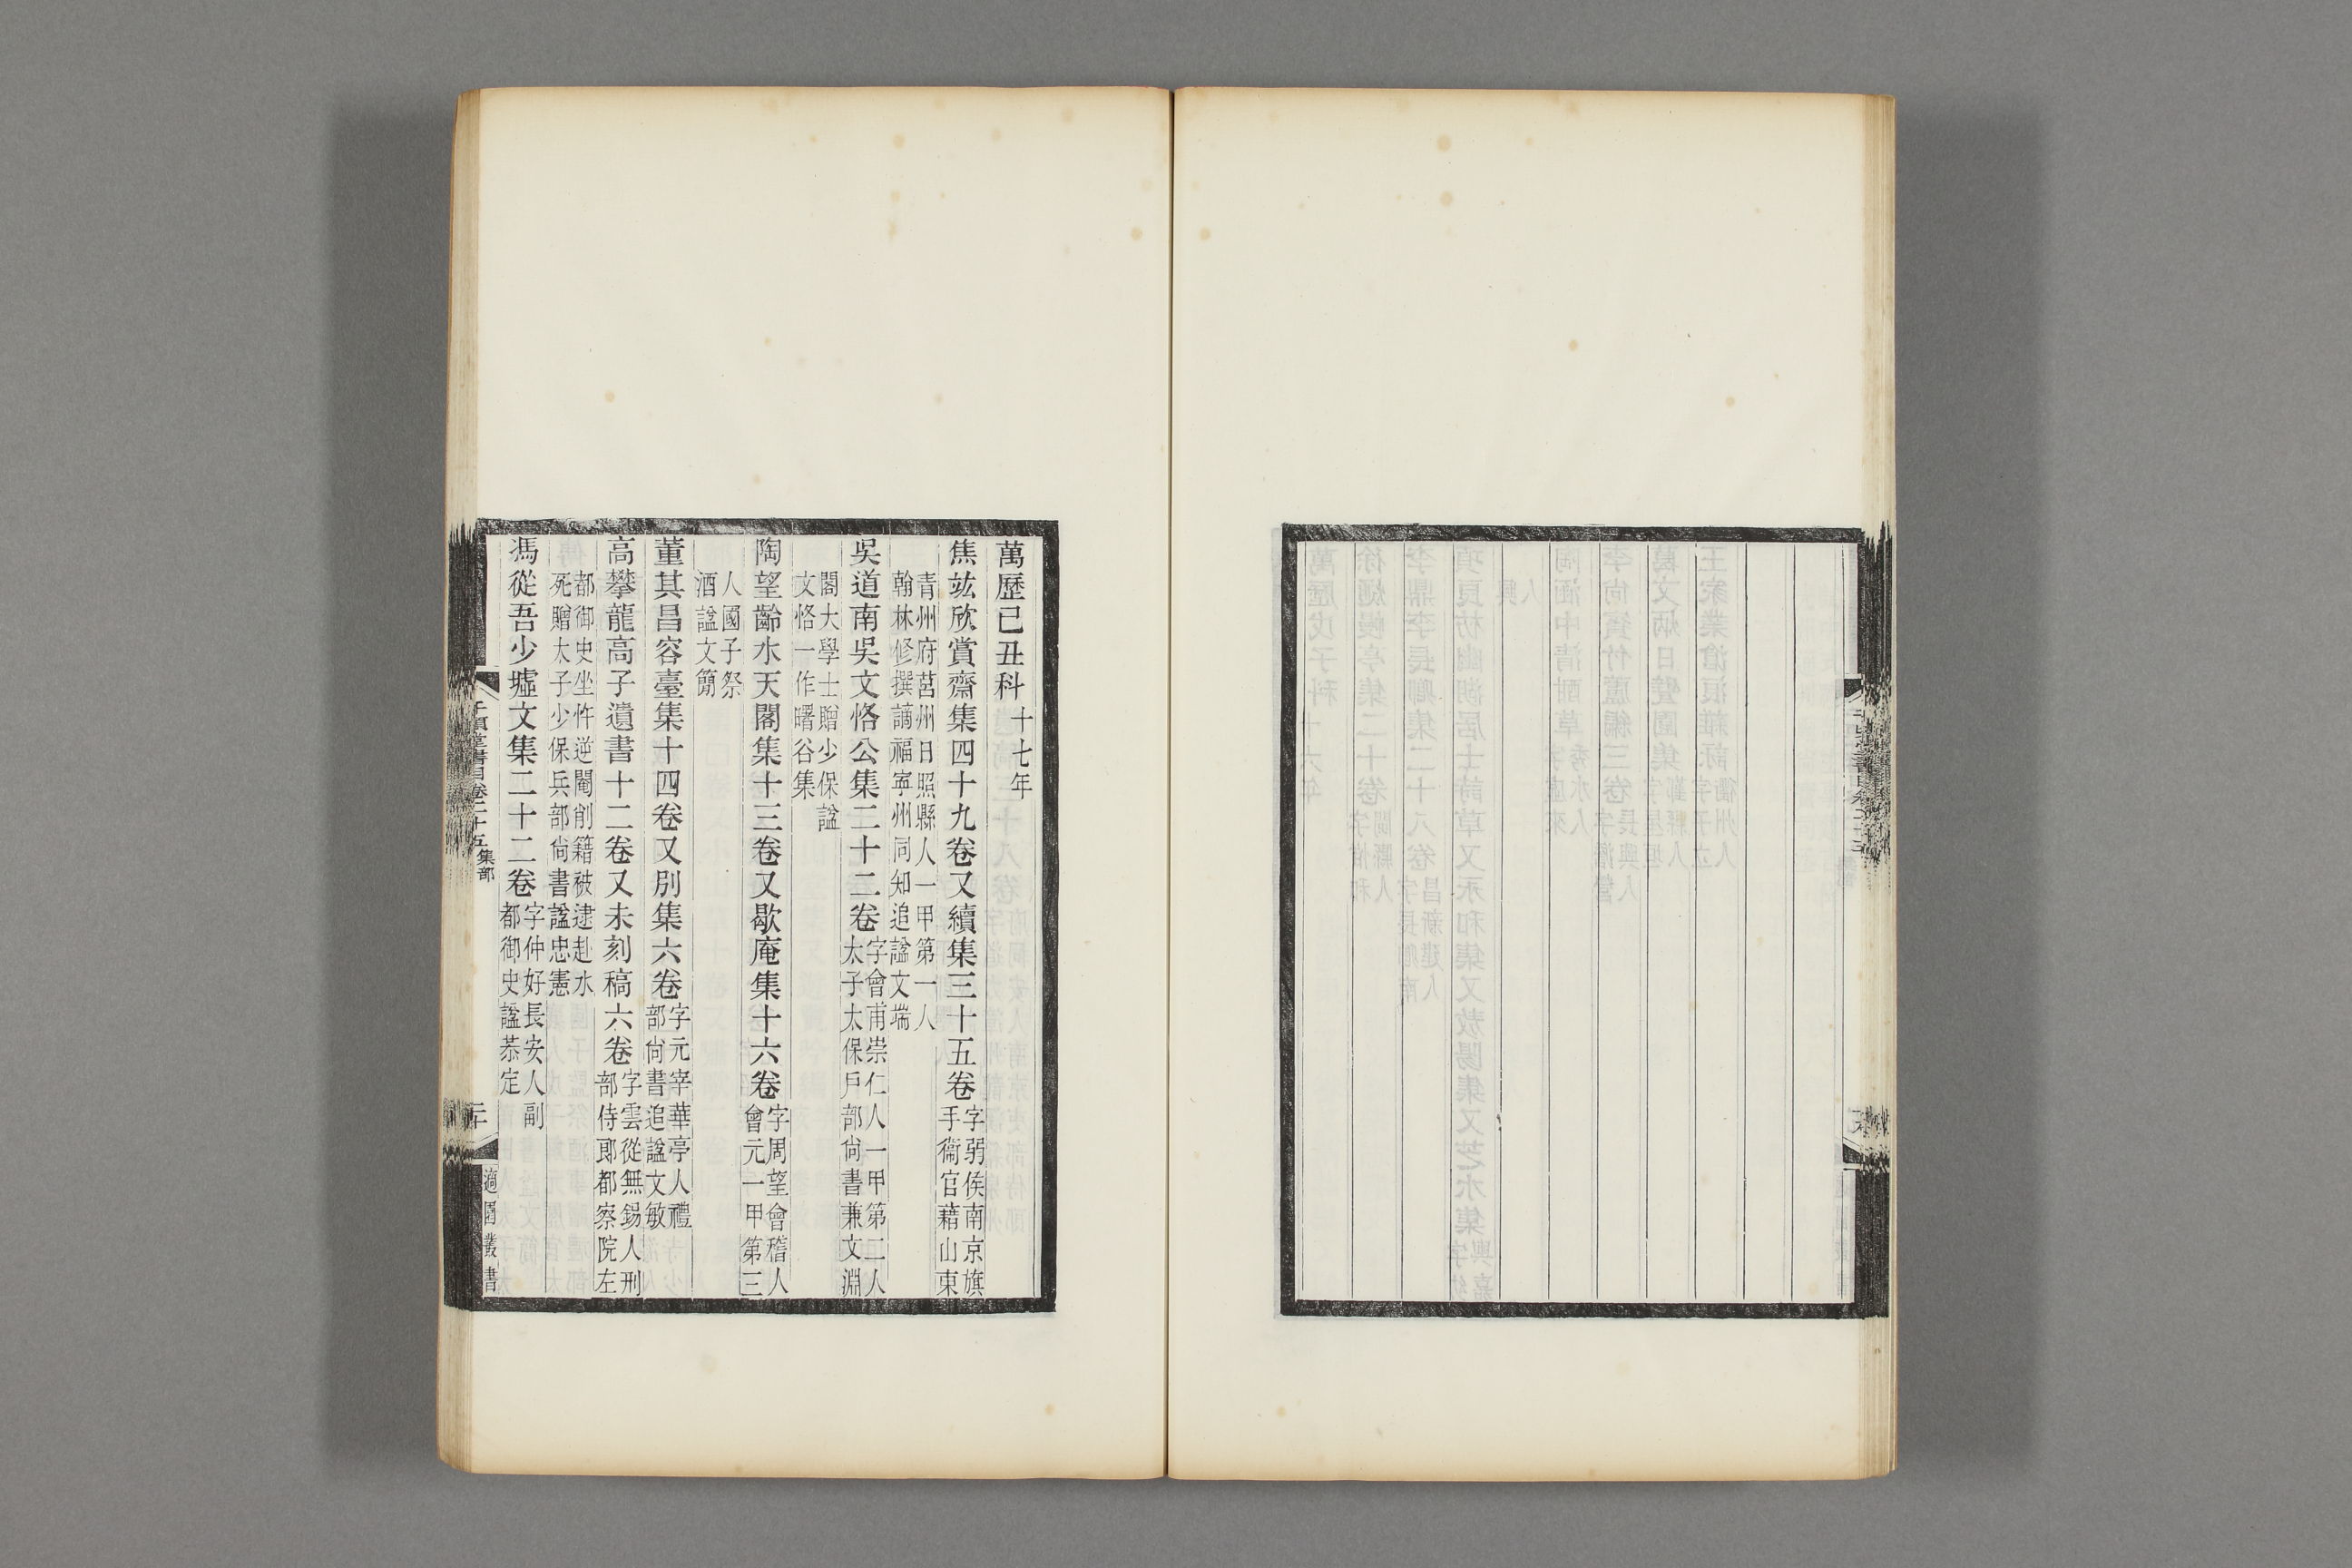 萬歷己丑科十七年
焦竑欣賞齋集四十九卷又續集三十五卷字弱侯南京旗手衞官藉山東
青州府莒州日照縣人一甲第一人翰林修撰謫福寧州同知追諡文端
吳道南吳文恪公集二十二卷字會甫崇仁人一甲第二人太子太保戶部尙書兼文淵
閣大學士贈少保諡文恪一作曙谷集
陶望齡水天閣集十三卷又歇庵集十六卷字周望會稽人會元一甲第三
人國子祭酒諡文簡
董其昌容臺集十四卷又別集六卷字元宰華亭人禮部尙書追諡文敏
高攀龍高子遺書十二卷又未刻稿六卷字雲從無錫人刑部侍郎都察院左
都御史坐忤逆閹削籍被逮赴水死贈太子少保兵部尙書諡忠憲
馮從吾少墟文集二十二卷字仲好長安人副都御史諡恭定
千頃堂書目卷二十五集部
二十
適園叢書